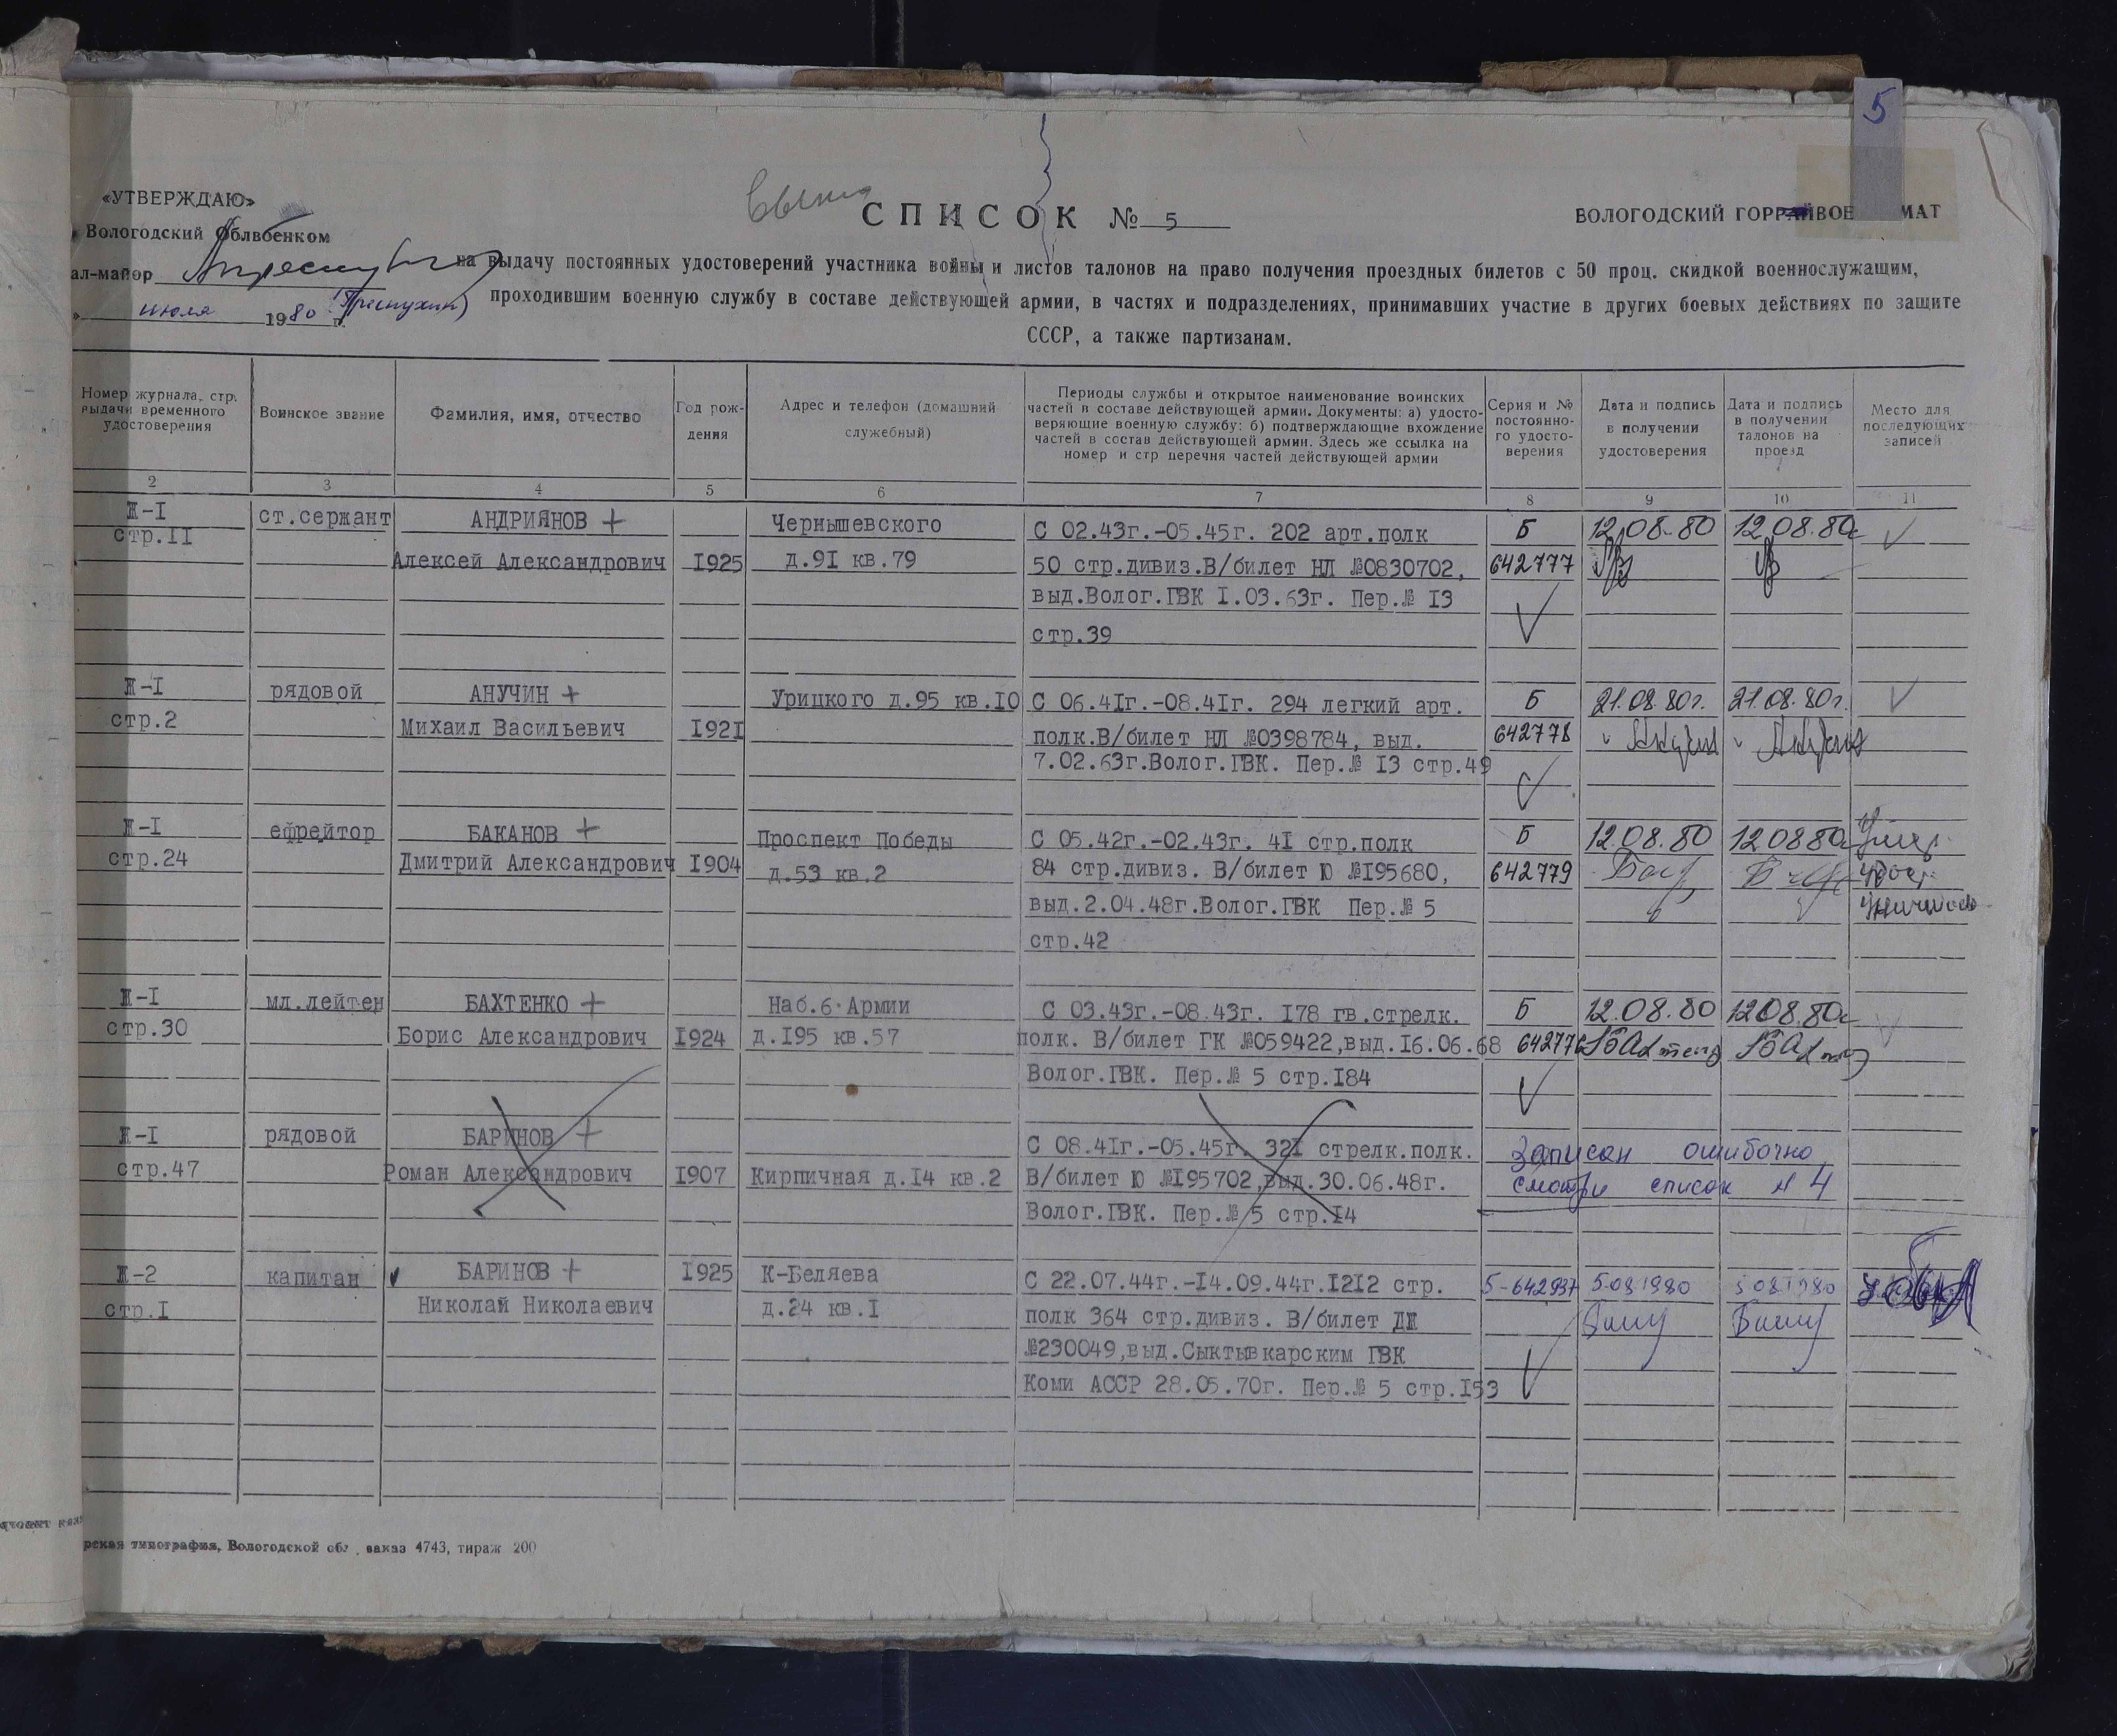 5
«УТВЕРЖДАЮ»
Вологодский Облвоенком
ал-майор
июля 1980 г.
СПИСОК № 5
ВОЛОГОДСКИЙ ГОРРАЙВОЕ МАТ
на выдачу постоянных удостоверений участника войны и листов талонов на право получения проездных билетов с 50 проц. скидкой военнослужащим,
проходившим военную службу в составе действующей армии, в частях и подразделениях, принимавших участие в других боевых действиях по защите
СССР, а также партизанам.
Номер журнала, стр. выдачи временного удостоверения
Воинское звание
Фамилия, имя, отчество
Год рождения
Адрес и телефон (домашний служебный)
Периоды службы и открытое наименование воинских
частей в составе действующей армии. Документы: а) удосто-
веряющие военную службу: б) подтверждающие вхождение
частей в состав действующей армии. Здесь же ссылка на
номер и стр перечня частей действующей армии
Серия и № постоянно-го удосто-верения
Дата и подпись в получении удостоверения
Дата и подпись в получении талонов на проезд
Место для последующих записей
2 3 4 5 6 7 8 9 10 11
Ж-I ст.сержант АНДРИЯНОВ + Чернышевского С 02.43г.-05.45г. 202 арт.полк Б 12.08.80 12.08.80г
стр.II Алексей Александрович I925 д.9I кв.79 50 стр.дивиз.В/билет НЛ №0830702, 642777
выд.Волог.ГВК I.03.63г. Пер.№ I3
стр.39
Ж-I рядовой АНУЧИН + Урицкого д.95 кв.IO С 06.4Iг.-08.4Iг. 294 легкий арт. Б 21.08.80г. 21.08.80г.
стр.2 Михаил Васильевич I92I полк.В/билет НЛ №0398784, выд. 642778
7.02.63г.Волог.ГВК. Пер.№ I3 стр.49
Ж-I ефрейтор БАКАНОВ + Проспект Победы С 05.42г.-02.43г. 4I стр.полк Б 12.08.80 12.08.80г
стр.24 Дмитрий Александрович I904 д.53 кв.2 84 стр.дивиз. В/билет Ю №I95680, 642779
выд.2.04.48г.Волог.ГВК Пер.№ 5
стр.42
Ж-I мл.лейтен БАХТЕНКО + Наб.6 Армии С 03.43г.-08.43г. I78 гв.стрелк. Б 12.08.80 12.08.80г
стр.30 Борис Александрович I924 д.I95 кв.57 полк. В/билет ГК №059422,выд.I6.06.68 642776
Волог.ГВК. Пер.№ 5 стр.I84
Ж-I рядовой БАРИНОВ + С 08.4Iг.-05.45г. 32I стрелк.полк. Записан ошибочно
стр.47 Роман Александрович I907 Кирпичная д.I4 кв.2 В/билет Ю №I95702,выд.30.06.48г. смотри список № 4
Волог.ГВК. Пер.№ 5 стр.I4
Ж-2 капитан БАРИНОВ + I925 К-Беляева С 22.07.44г.-I4.09.44г.I2I2 стр. Б-642937 5.08.1980 5.08.1980
стр.I Николай Николаевич д.24 кв.I полк 364 стр.дивиз. В/билет ДЖ
№230049,выд.Сыктывкарским ГВК
Коми АССР 28.05.70г. Пер.№ 5 стр.I53
рская типография, Вологодской обл., заказ 4743, тираж 200